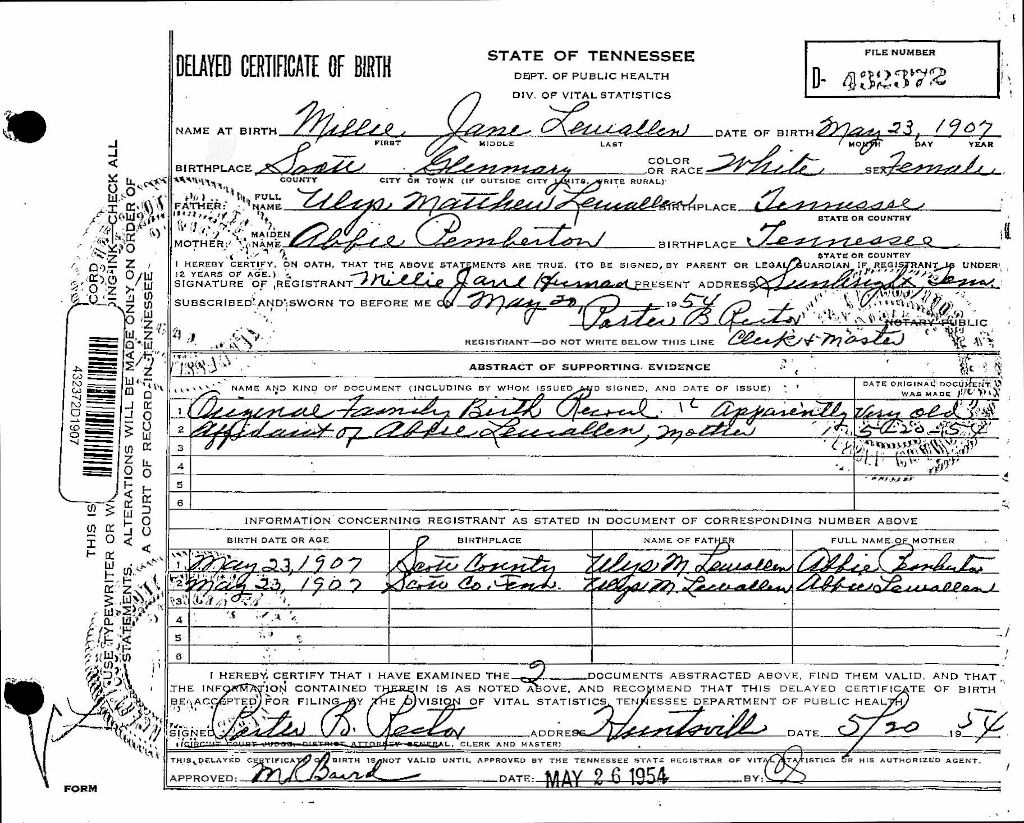 DELAYED CERTIFICATE OF BIRTH
STATE OF TENNESSEE
DEPT. OF PUBLIC HEALTH
DIV. OF VITAL STATISTICS
FILE NUMBER
D- 432372
NAME AT BIRTH Millie Jane Lewallen DATE OF BIRTH May 23, 1907
FIRST MIDDLE LAST MONTH DAY YEAR
BIRTHPLACE Scott Glenmary COLOR OR RACE White SEX Female
COUNTY CITY OR TOWN (IF OUTSIDE CITY LIMITS, WRITE RURAL)
FATHER: FULL NAME Ulys Matthew Lewallen BIRTHPLACE Tennessee
STATE OR COUNTRY
MOTHER: MAIDEN NAME Abbie Pemberton BIRTHPLACE Tennessee
STATE OR COUNTRY
I HEREBY CERTIFY, ON OATH, THAT THE ABOVE STATEMENTS ARE TRUE. (TO BE SIGNED, BY PARENT OR LEGAL GUARDIAN IF REGISTRANT IS UNDER
12 YEARS OF AGE.)
SIGNATURE OF REGISTRANT Millie Jane PRESENT ADDRESS Sunbright Tenn.
SUBSCRIBED AND SWORN TO BEFORE ME May 20, 1954
Porter B Rector NOTARY PUBLIC
REGISTRANT—DO NOT WRITE BELOW THIS LINE Clerk & Master
ABSTRACT OF SUPPORTING EVIDENCE
NAME AND KIND OF DOCUMENT (INCLUDING BY WHOM ISSUED AND SIGNED, AND DATE OF ISSUE) DATE ORIGINAL DOCUMENT WAS MADE
1 Original Family Birth Record. Apparently very old
2 Affidavit of Abbie Lewallen, Mother 5-20-54
3
4
5
6
INFORMATION CONCERNING REGISTRANT AS STATED IN DOCUMENT OF CORRESPONDING NUMBER ABOVE
BIRTH DATE OR AGE BIRTHPLACE NAME OF FATHER FULL NAME OF MOTHER
1 May 23, 1907 Scott County Ulys M. Lewallen Abbie Pemberton
2 May 23, 1907 Scott Co. Tenn. Ulys M. Lewallen Abbie Lewallen
3
4
5
6
I HEREBY CERTIFY THAT I HAVE EXAMINED THE 2 DOCUMENTS ABSTRACTED ABOVE, FIND THEM VALID, AND THAT
THE INFORMATION CONTAINED THEREIN IS AS NOTED ABOVE, AND RECOMMEND THAT THIS DELAYED CERTIFICATE OF BIRTH
BE ACCEPTED FOR FILING BY THE DIVISION OF VITAL STATISTICS, TENNESSEE DEPARTMENT OF PUBLIC HEALTH
SIGNED Porter B. Rector ADDRESS Huntsville DATE 5/20 1954
(CIRCUIT COURT JUDGE, DISTRICT ATTORNEY GENERAL, CLERK AND MASTER)
THIS DELAYED CERTIFICATE OF BIRTH IS NOT VALID UNTIL APPROVED BY THE TENNESSEE STATE REGISTRAR OF VITAL STATISTICS OR HIS AUTHORIZED AGENT.
APPROVED: M R Baird DATE: MAY 26 1954 BY:
FORM
432372D1907
THIS IS
CORD
USE TYPEWRITER OR
ING INK. CHECK ALL
STATEMENTS. ALTERATIONS WILL BE MADE ONLY ON ORDER OF
A COURT OF RECORD IN TENNESSEE.